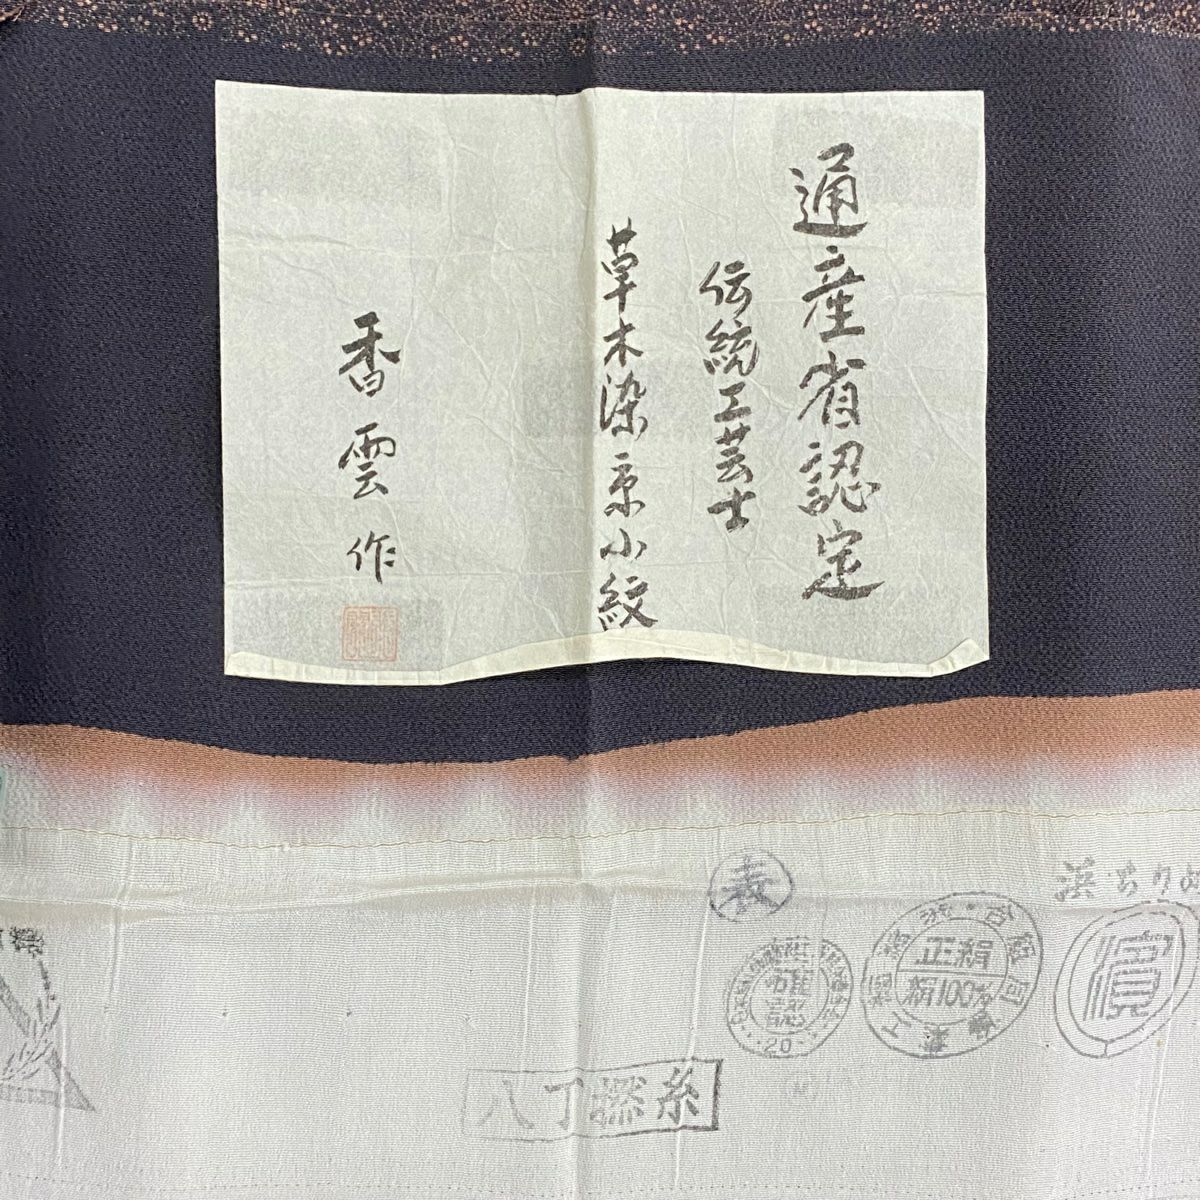 通産省認定
伝統工芸士
草木染京小紋
香雲作
表
浜ちりめ
正絹
絹100%
濱
確認
20
八丁撚糸